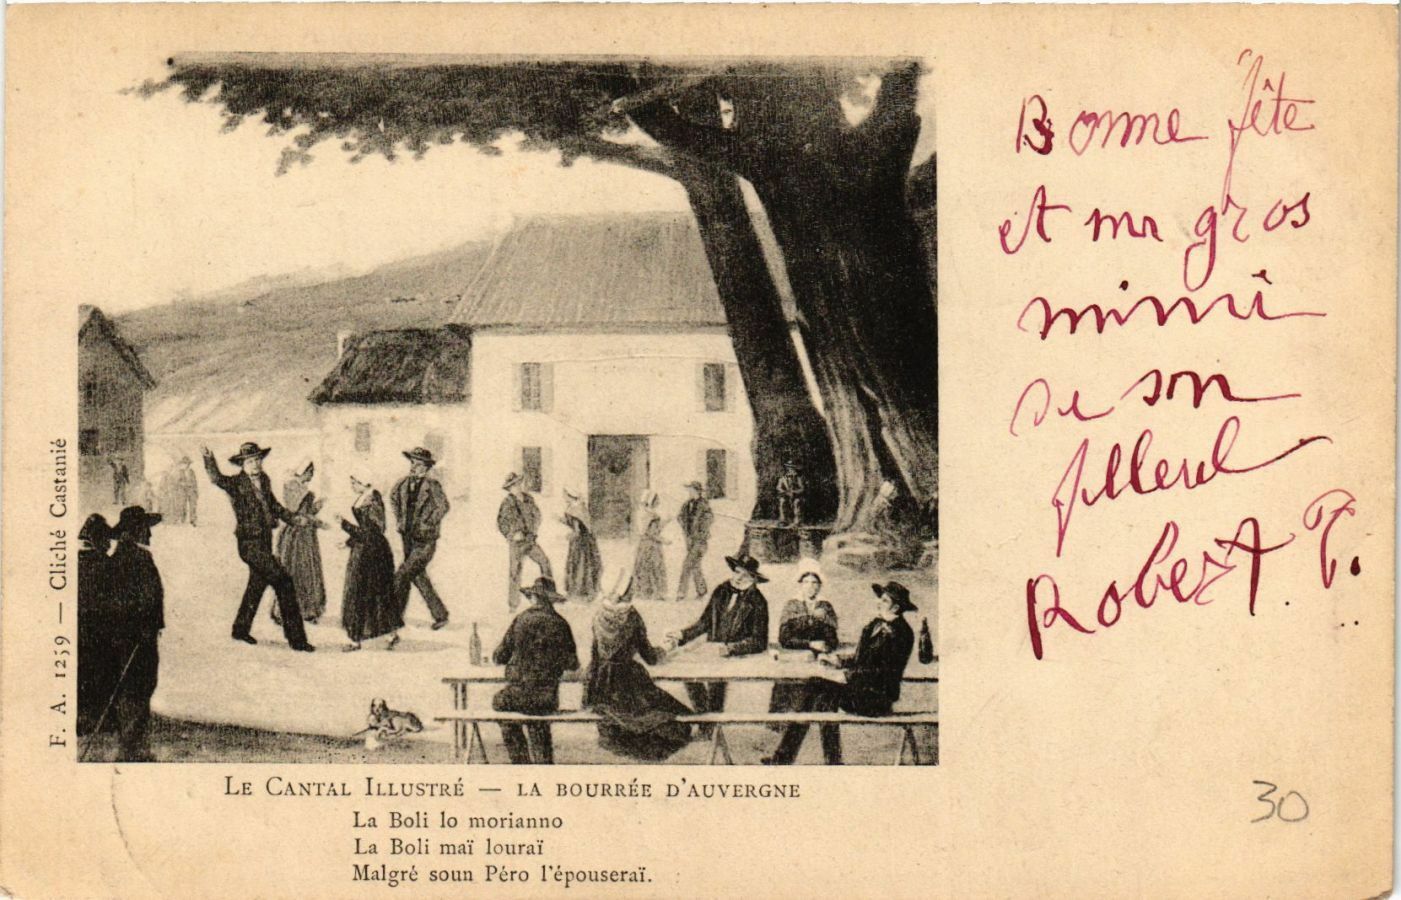 Bonne fête
et un gros
mimi
de son
filleul
Robert P.
F. A. 1259 — Cliché Castanié
LE CANTAL ILLUSTRÉ — LA BOURRÉE D'AUVERGNE
La Boli lo morianno
La Boli maï louraï
Malgré soun Péro l'épouseraï.
30